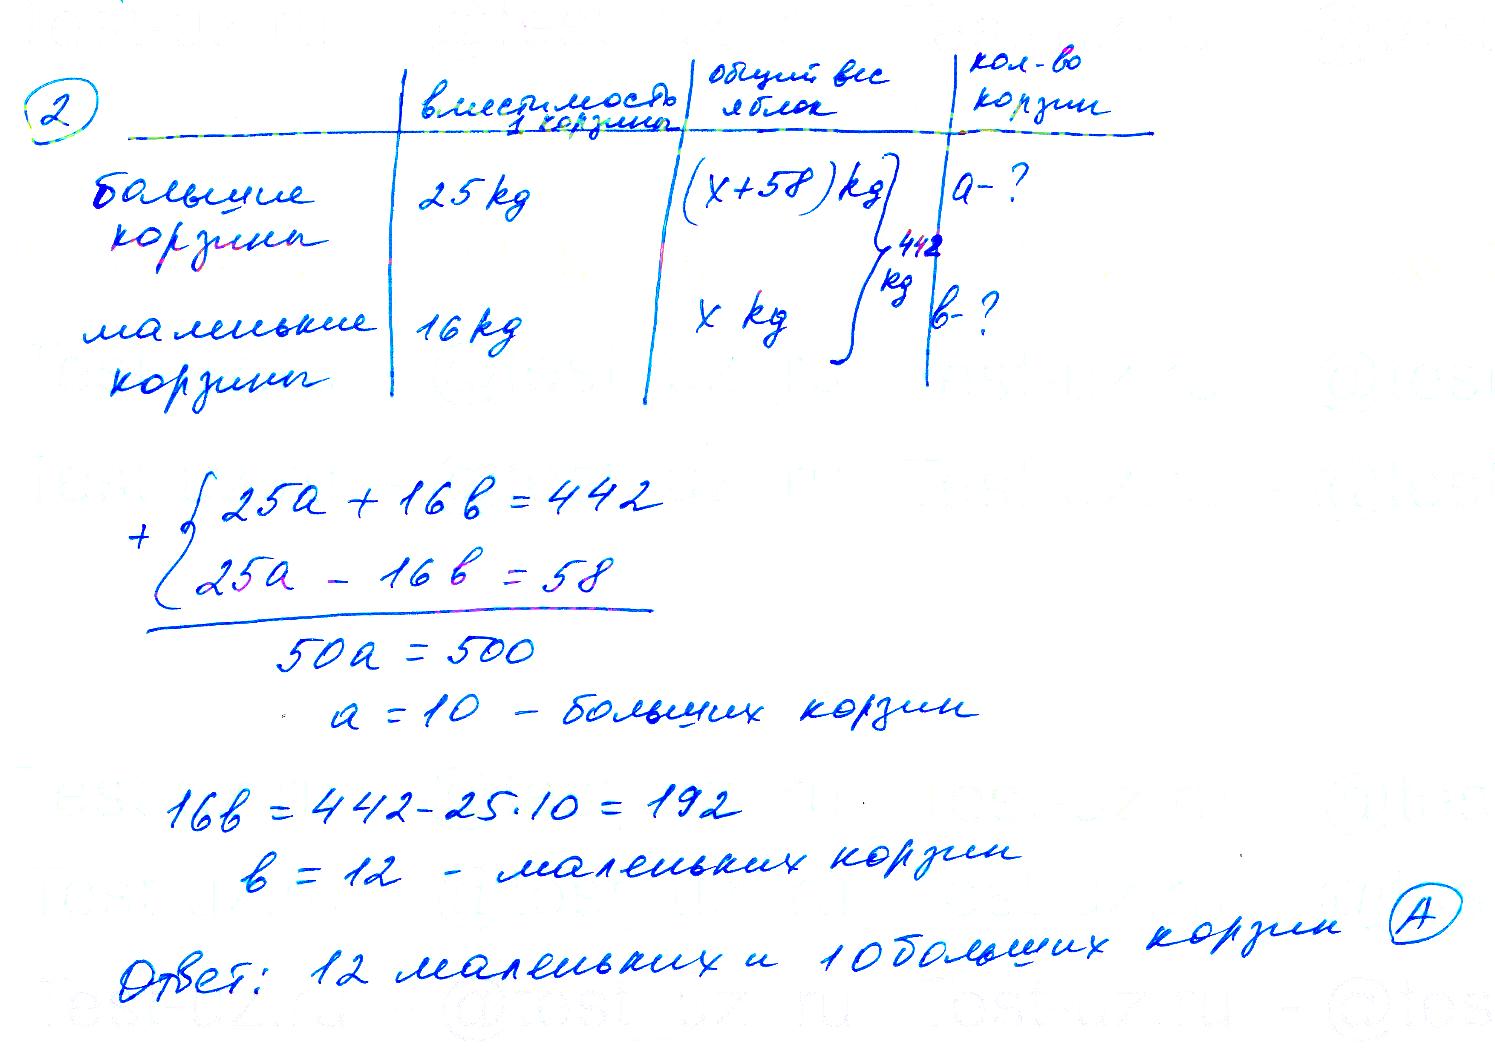 2
вместимость 1 корзины
общий вес яблок
кол-во корзин
большие корзины
25 kg
(x+58) kg
a-?
442 kg
маленькие корзины
16 kg
x kg
в-?
25a + 16в = 442
+
25a - 16в = 58
50a = 500
a = 10 - больших корзин
16в = 442-25·10 = 192
в = 12 - маленьких корзин
Ответ: 12 маленьких и 10 больших корзин A